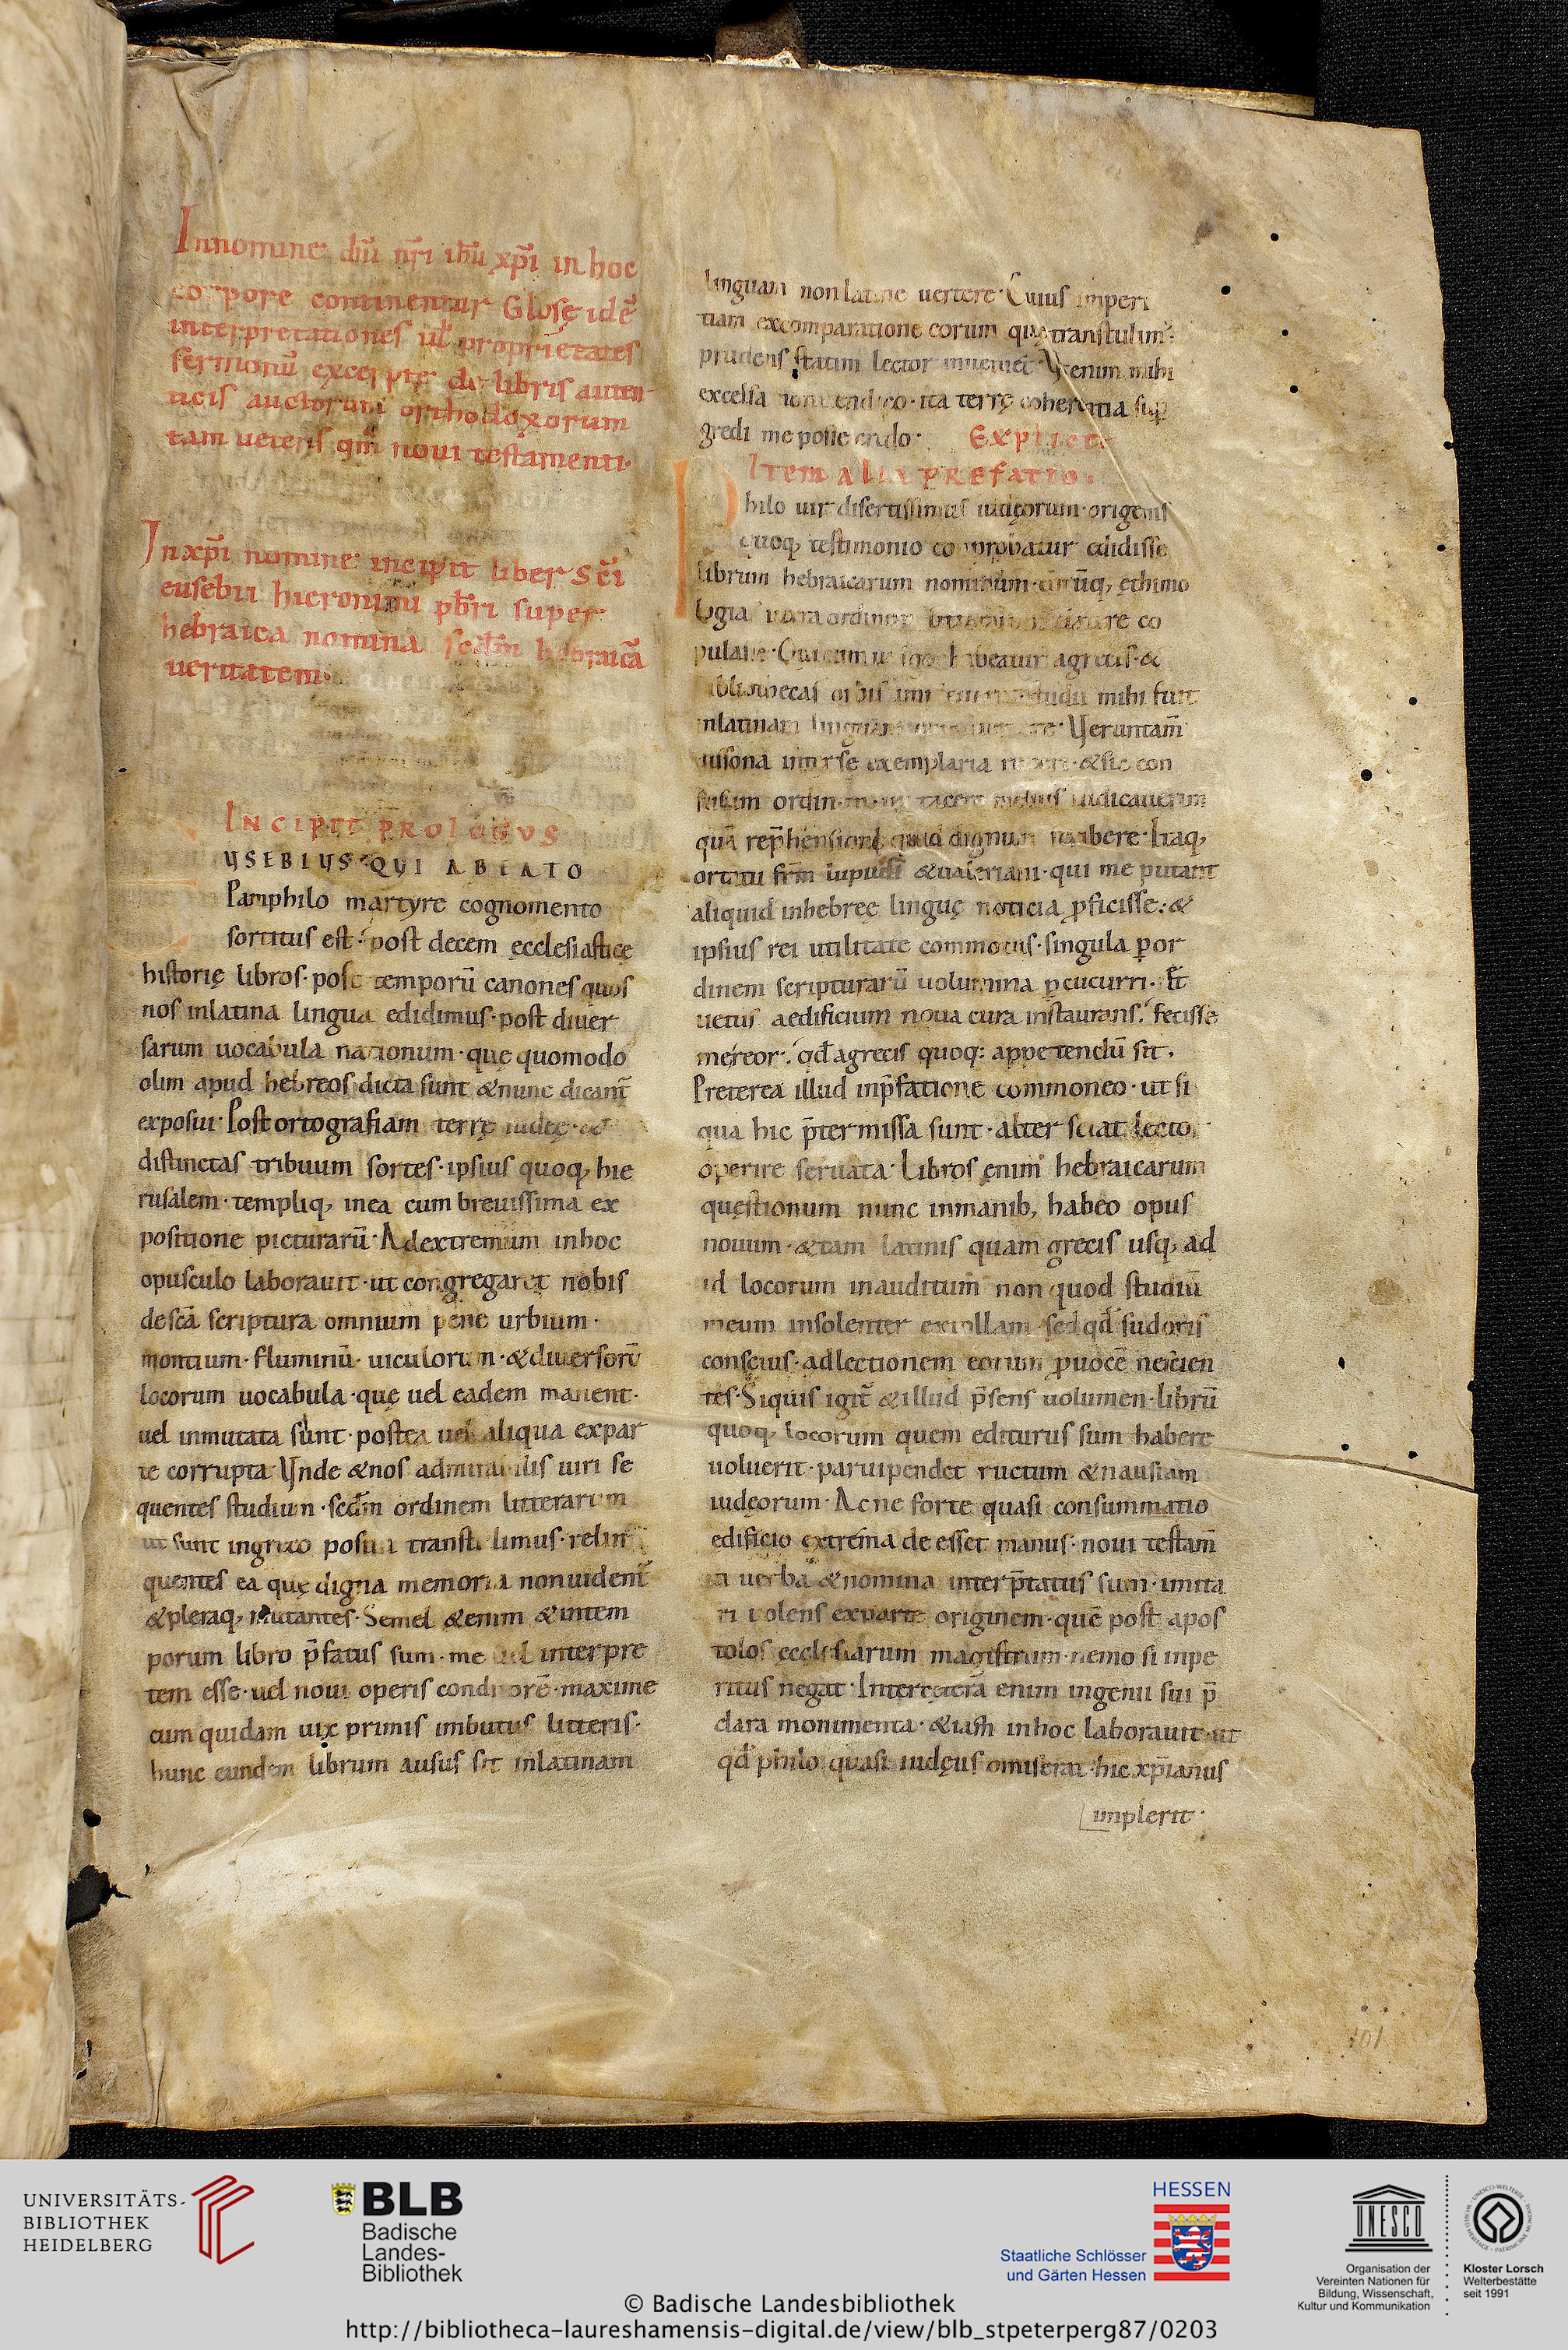 Innomine dñi nr̄i ihū xp̄i in hoc
corpore continentur Glosę idē
interpretationes ul̄ proprietates
sermonū excerptę de libris auten
ticis auctorum orthodoxorum
tam ueteris qm̄ noui testamenti·
Inxp̄i nomine incipit liber Sc̄i
eusebii hieronimi pb̄ri super
hebraica nomina scd̄m hebraicā
ueritatem·
INCIPIT PROLOGVS
VSEBIVS·QVI A BEATO
Pamphilo martyre cognomento
sortitus est· post decem ecclesiasticę
historię libros· post temporū canones quos
nos inlatina lingua edidimus· post diuer
sarum uocabula nationum· quę quomodo
olim apud hebreos dicta sunt &nunc dicant̄
exposui· Post ortografiam terrę iudeę· &
distinctas tribuum sortes· ipsius quoq, hie
rusalem· templiq, inea cum breuissima ex
positione picturarū· Adextremum inhoc
opusculo laborauit· ut congregaret nobis
descā scriptura omnium pene urbium·
montium· fluminū· uiculorum· &diuersorū
locorum uocabula· quę uel eadem manent·
uel inmutata sunt· postea uel aliqua expar
te corrupta Vnde &nos admirabilis uiri se
quentes studium· scd̄m ordinem litterarum
ut sunt ingrixo posita transtulimus· relin
quentes ea quę digna memoria nonuident̄
&pleraq, mutantes· Semel &enim &intem
porum libro p̄fatus sum· me uel interpre
tem esse· uel noui operis conditorē· maxime
cum quidam uix primis imbutus litteris·
hunc eundem librum ausus sit inlatinam
linguam nonlatine uertere· Cuius imperi
tiam excomparatione eorum quę transtulim̄·
prudens statim lector inueniet· Vt enim mihi
excelsa non uendico· ita terrę coherentia sup
gredi me posse credo· Explicit
Item alia prefatio·
Philo uir disertissimus iudeorum· origenis
quoq, testimonio comprobatur edidisse
librum hebraicarum nominum· eorūq, ethimo
logias iuxta ordinem litterarum elatere co
pulasse· Qui cum uulgo habeatur agrecis· &
bibliothecas orbis impleuerit studii mihi fuit
inlatinam linguam uertere· Veruntam̄
exemplaria &sic con
fusum ordinem ut tacere melius iudicauerim
quā rep̄hensione quid dignum scribere· Itaq,
ortatu fr̄m lupuli &ualeriani· qui me putant
aliquid inhebreę linguę noticia pficisse· &
ipsius rei utilitate commotus· singula por
dinem scripturarū uolumina pcucurri· Et
uetus aedificium noua cura instaurans· fecisse
mereor· qd̄ agrecis quoq: appetendū sit·
Preterea illud inp̄fatione commoneo· ut si
qua hic p̄termissa sunt· alter sciat lector
operire seruata· Libros enim hebraicarum
quęstionum nunc inmanib, habeo opus
nouum· &tam latinis quam grecis usq, ad
id locorum inauditum non quod studiū
meum insolenter extollam· sed qd̄ sudoris
conscius· adlectionem eorum puocē nescien
tes· Siquis igit̄ &illud p̄sens uolumen· librū
quoq, locorum quem editurus sum habere
uoluerit· paruipendet ructum &nausiam
iudęorum· Acne forte quasi consummatio
edificio extrema de esset manus· noui testam̄
ti uerba &nomina interp̄tatus sum· imita
ri uolens exparte originem· quē post apos
tolos ecclesiarum magistrum· nemo si inpe
ritus negat· Inter cetera enim ingenii sui p̄
clara monimenta· &iam inhoc laborauit· ut
qd̄ philo quasi iudęus omiserat· hic xp̄ianus
implerit·
101
UNIVERSITÄTS-
BIBLIOTHEK
HEIDELBERG
BLB
Badische
Landes-
Bibliothek
HESSEN
Staatliche Schlösser
und Gärten Hessen
UNESCO
Organisation der
Vereinten Nationen für
Bildung, Wissenschaft,
Kultur und Kommunikation
Kloster Lorsch
Welterbestätte
seit 1991
© Badische Landesbibliothek
http://bibliotheca-laureshamensis-digital.de/view/blb_stpeterperg87/0203